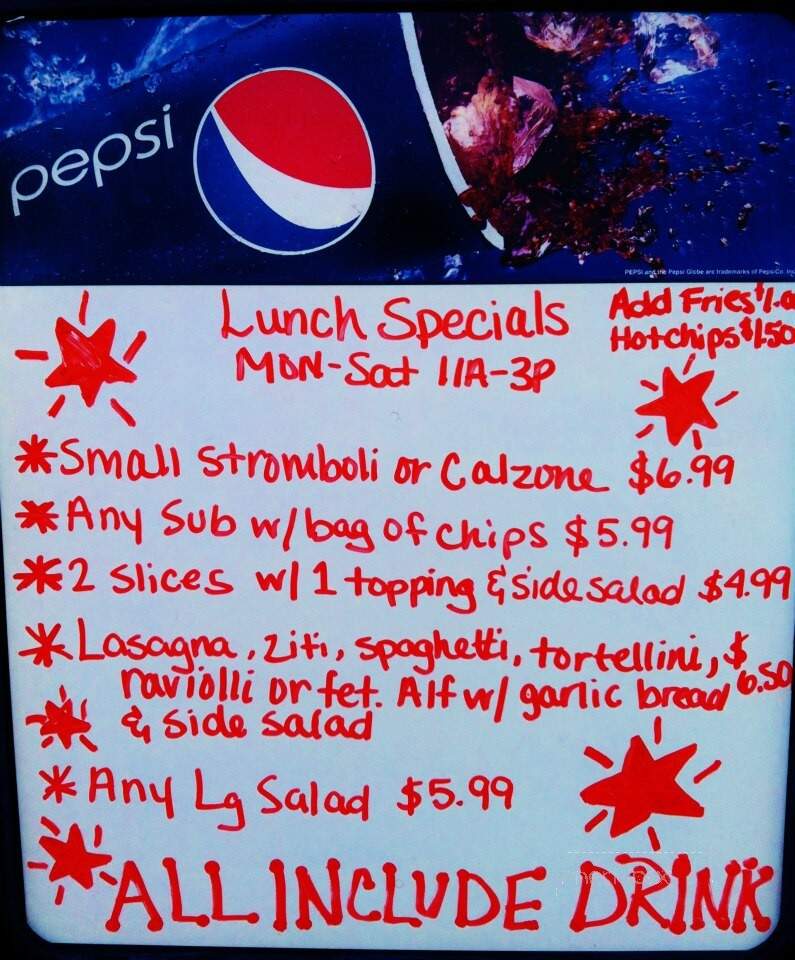 pepsi
PEPSI and the Pepsi Globe are trademarks of PepsiCo, Inc
Lunch Specials
MON-Sat 11A-3P
Add Fries $1.0
Hotchips $1.50
*Small Stromboli or Calzone $6.99
*Any Sub w/bag of chips $5.99
*2 slices w/ 1 topping & side salad $4.99
*Lasagna, ziti, spaghetti, tortellini, $
raviolli or fet. Alf w/ garlic bread 6.50
& side salad
*Any Lg Salad $5.99
ALL INCLUDE DRINK